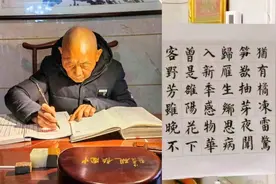 猶有橘凍雷驚
笋欲抽芽夜聞
歸雁生鄉思病
入新秊感物華
曾是雒陽花下
客野芳雖晚不